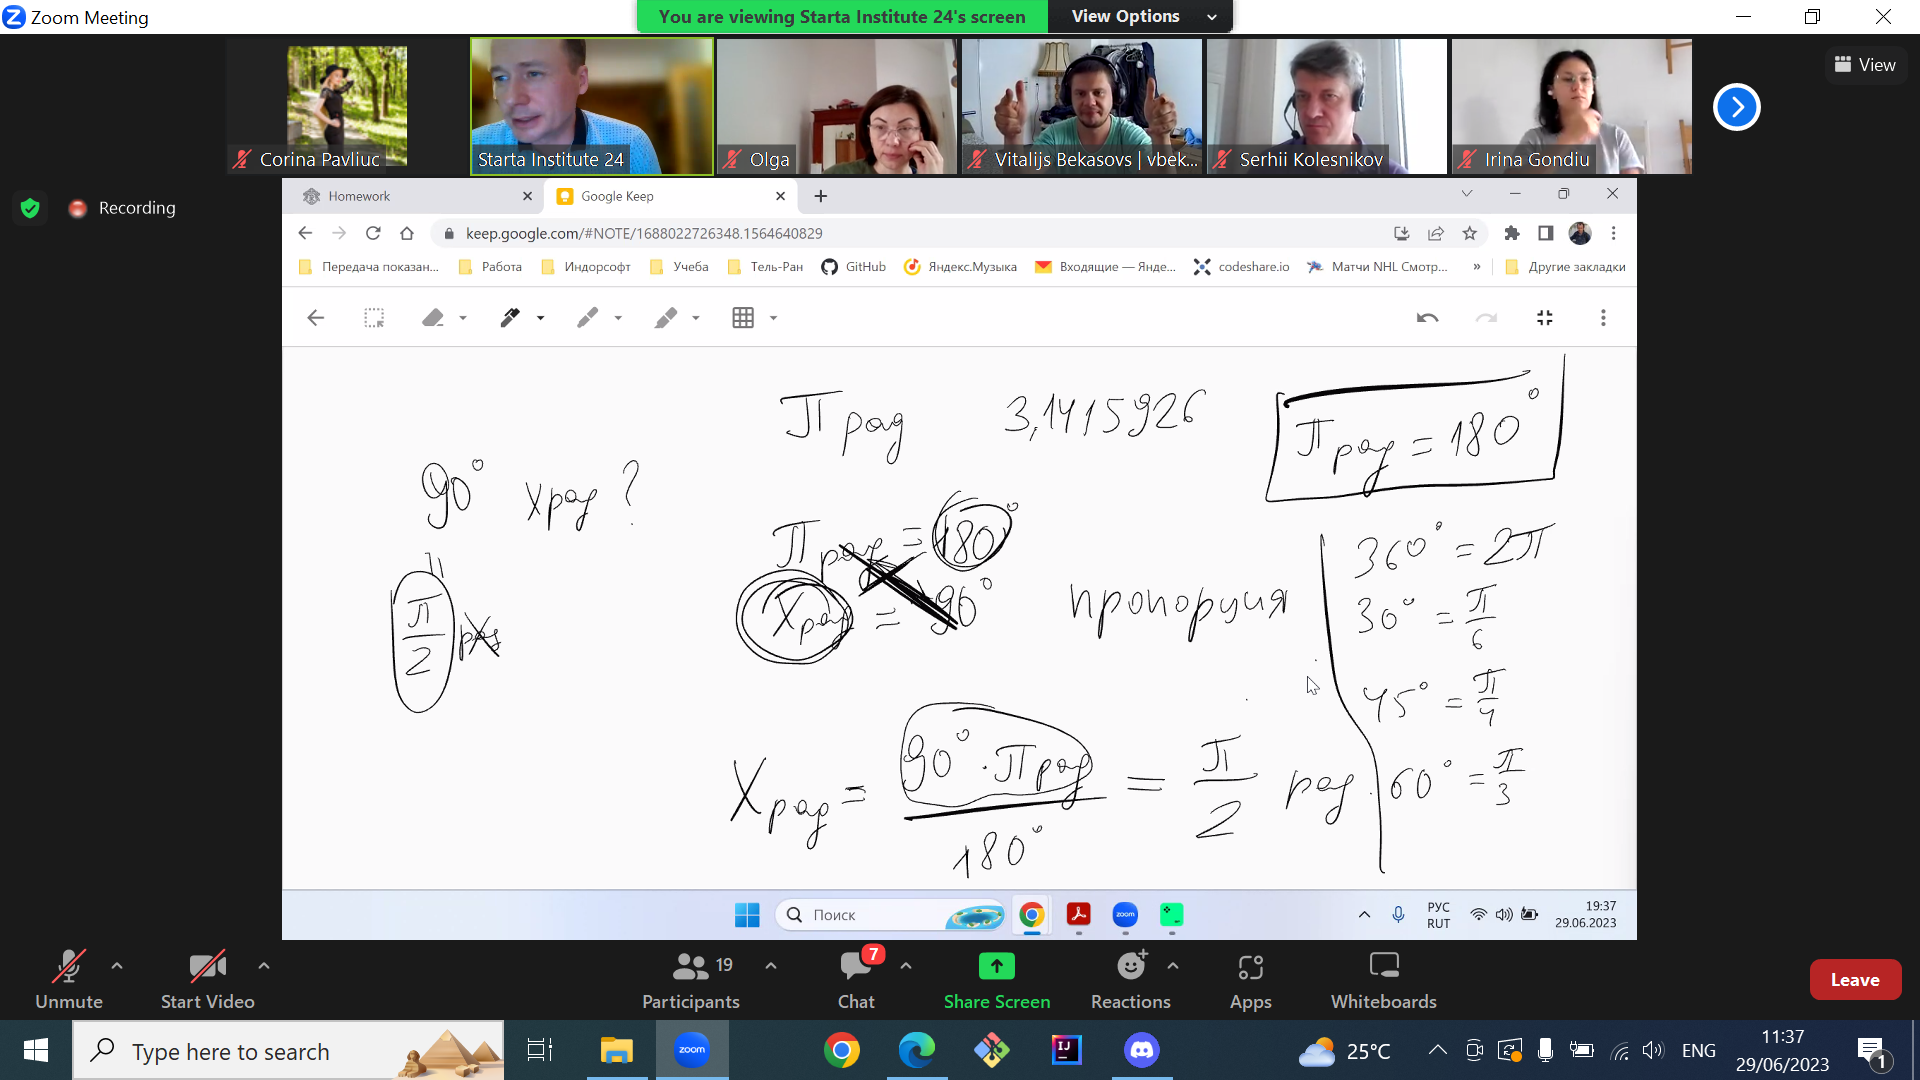 Zoom Meeting
You are viewing Starta Institute 24's screen
View Options
View
Corina Pavliuc
Starta Institute 24
Olga
Vitalijs Bekasovs | vbek...
Serhii Kolesnikov
Irina Gondiu
Recording
Homework
Google Keep
keep.google.com/#NOTE/1688022726348.1564640829
Передача показан...
Работа
Индорсофт
Учеба
Тель-Ран
GitHub
Яндекс.Музыка
Входящие — Янде...
codeshare.io
Матчи NHL Смотр...
»
Другие закладки
П рад 3,1415926
П рад = 180°
90° x рад ?
П рад = 180°
X рад = 90°
пропорция
360° = 2π
30° = π/6
45° = π/4
60° = π/3
=
π/2 рад
X рад = 90° · П рад / 180° = π/2 рад.
Поиск
zoom
РУС
RUT
19:37
29.06.2023
Unmute
Start Video
19
Participants
7
Chat
Share Screen
Reactions
Apps
Whiteboards
Leave
Type here to search
zoom
IJ
25°C
ENG
11:37
29/06/2023
1